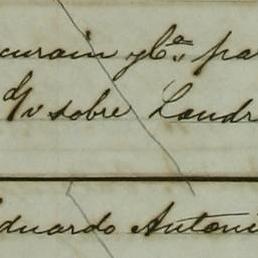 curain y Ca. pa
d/v sobre Londr
Eduardo Antoni